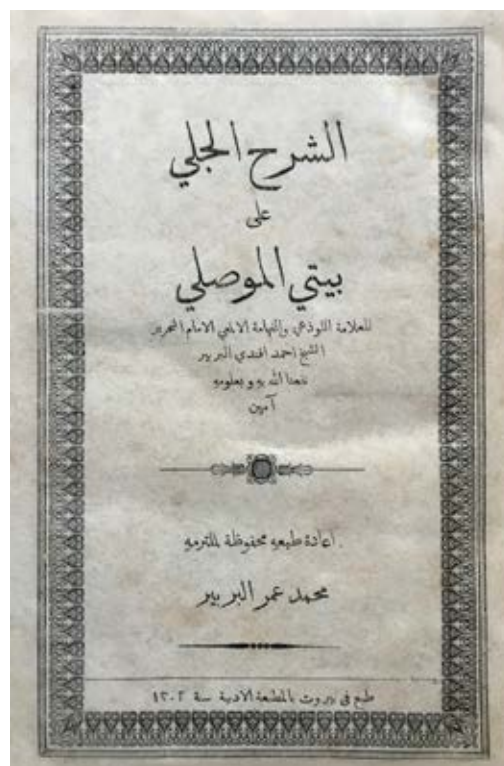 الشرح الجلي
على
بيتي الموصلي
للعلامة اللوذعي والفهامة الالمعي الامام النحرير
الشيخ احمد افندي البربير
نفعنا الله به وبعلومه
آمين
اعادة طبعه محفوظة لملتزمه
محمد عمر البربير
طبع في بيروت بالمطبعة الادبية سنة ١٣٠٢